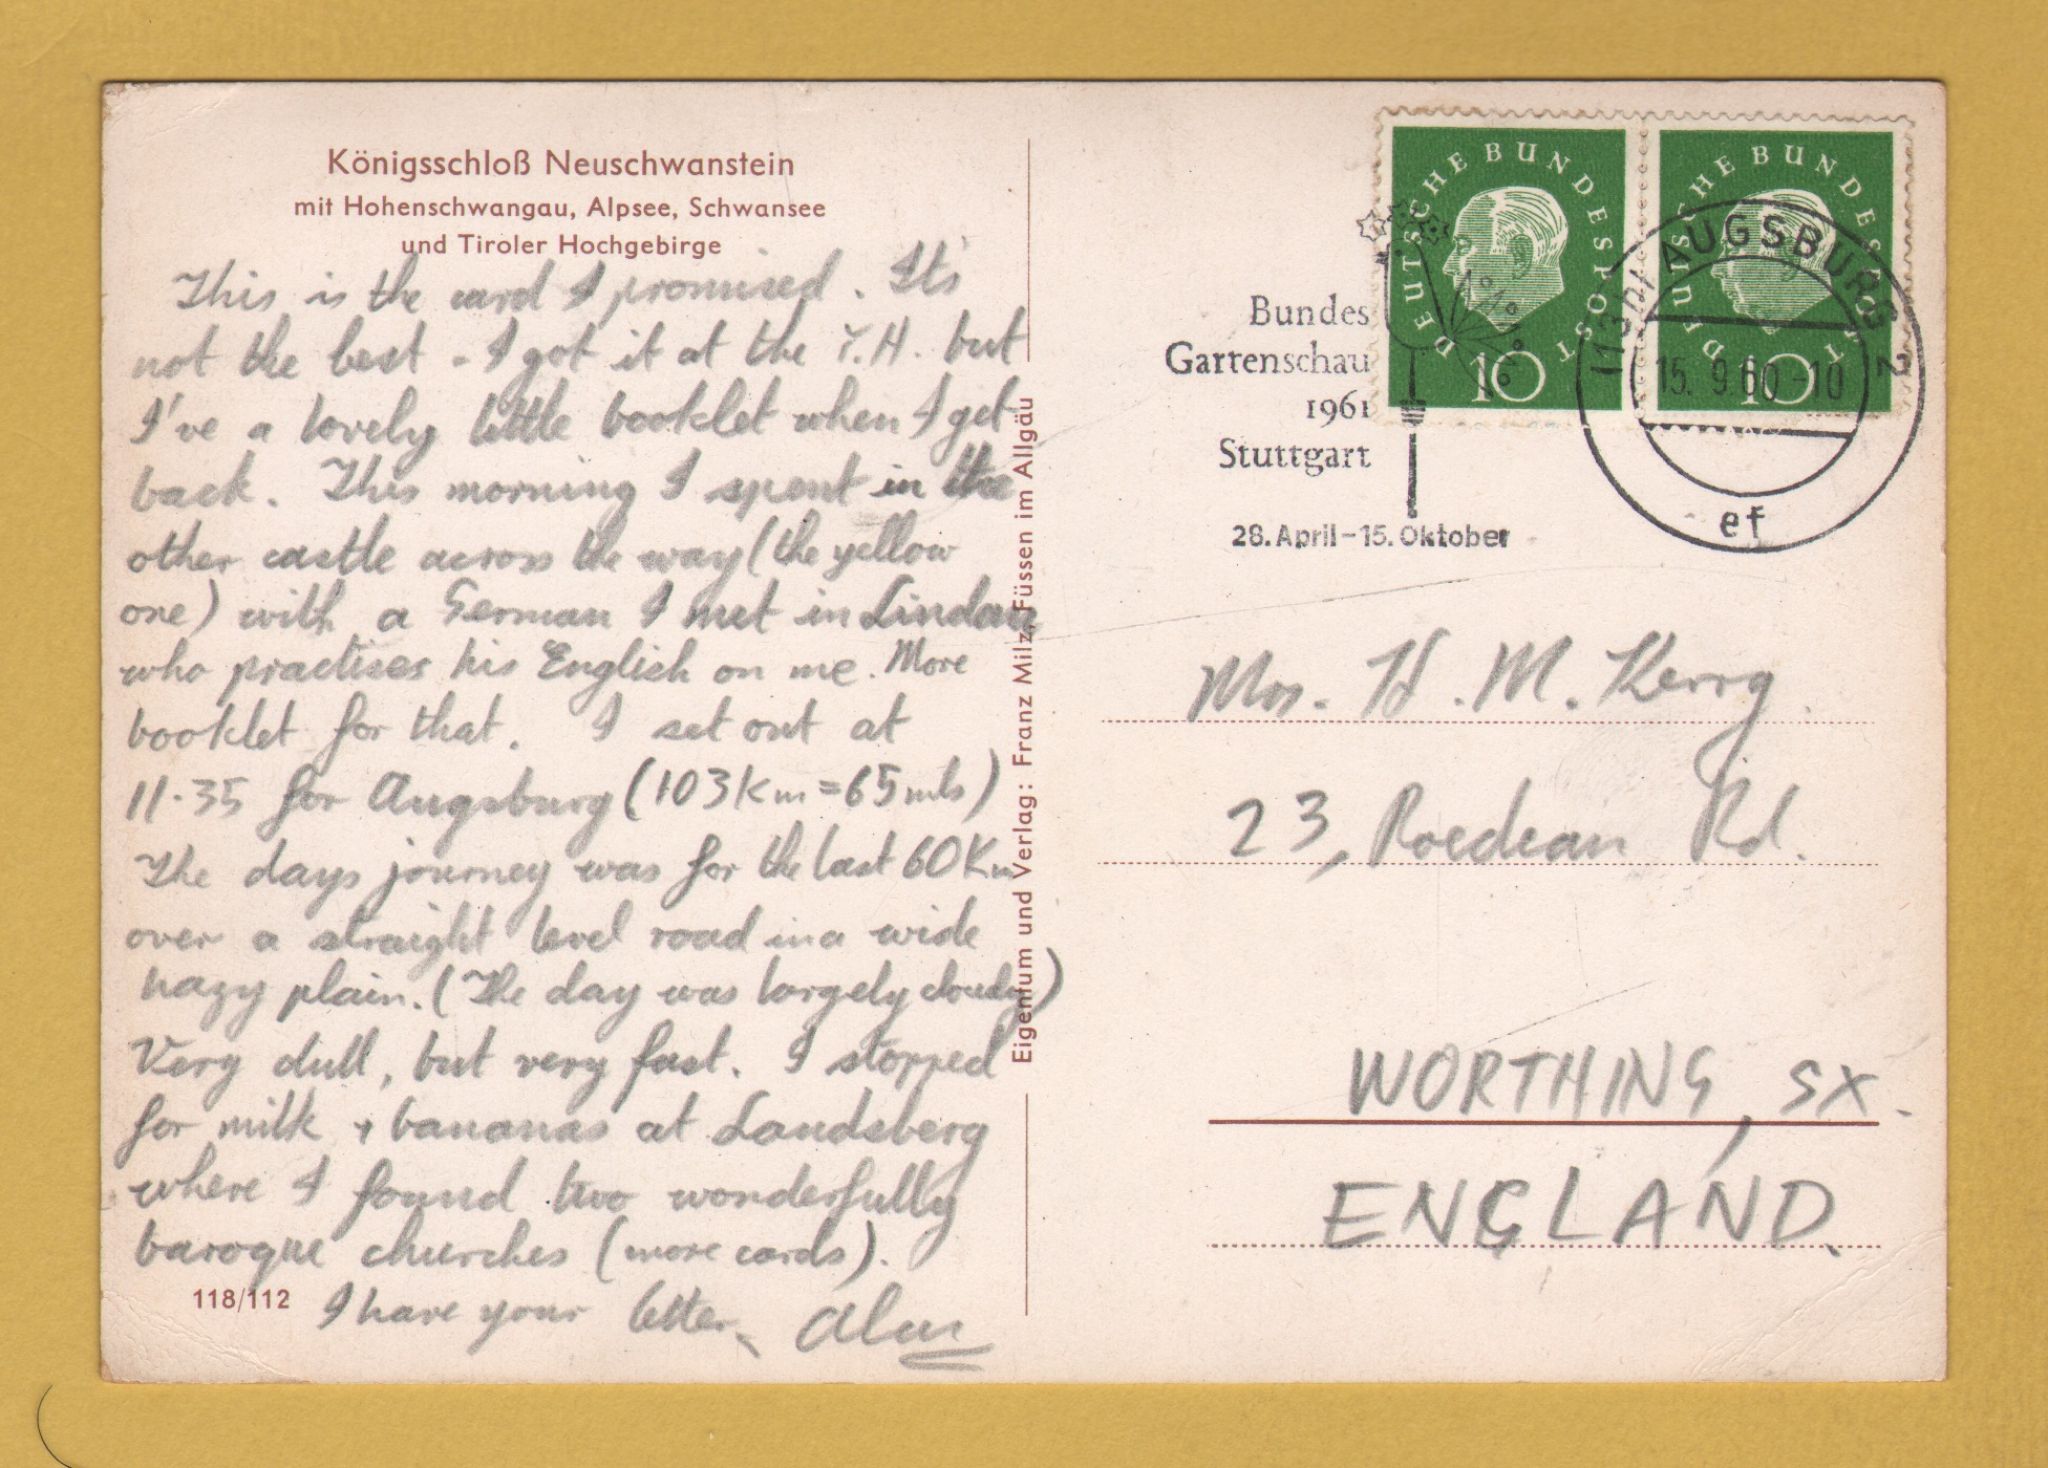 Königsschloß Neuschwanstein
mit Hohenschwangau, Alpsee, Schwansee
und Tiroler Hochgebirge
This is the card I promised. It's
not the best - I got it at the Y.H. but
I've a lovely little booklet when I get
back. This morning I spent in the
other castle across the way (the yellow
one) with a German I met in Lindau
who practises his English on me. More
booklet for that. I set out at
11.35 for Augsburg (103 Km = 65 mls)
The days journey was for the last 60 Km
over a straight level road in a wide
hazy plain. (The day was largely cloudy)
Very dull, but very fast. I stopped
for milk + bananas at Landsberg
where I found two wonderfully
baroque churches (more cards).
I have your letter. Alan
118/112
Eigentum und Verlag: Franz Milz, Füssen im Allgäu
DEUTSCHE BUNDESPOST
10
DEUTSCHE BUNDESPOST
10
Bundes
Gartenschau
1961
Stuttgart
28. April - 15. Oktober
(13b) AUGSBURG 2
15. 9. 60 -10
ef
Mrs. H. M. Kerry.
23, Roedean Rd.
WORTHING, SX.
ENGLAND.